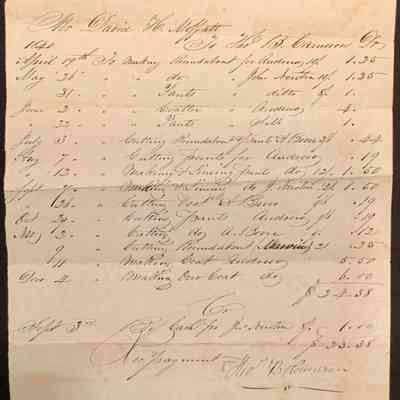 Mr David H. Moffatt
To Thos B. Cameron Dr
April 19th To Making Roundabout for Andrew 1.25
May 21 " " do " John Newton 1.25
" 31 " " Pants " ditto 1.
June 2 " " Coatee " Andrew 4.
" 22 " " Pants " 1.
July 3 " Cutting Roundabout & Pants A .44
Aug 7 " Cutting pants for Andrew .19
" 12 " Making & pant do 1.50
Sept 7 " Making & do J. Newton 1.50
" 126 " Cutting Coat A .19
Oct 20 " Cutting pants Andrew .19
Nov 2 " Cutting do A. .12
" 9 " Cutting Roundabout .25
" " 4 " Making Coat Andrew 5.50
Dec 4 " Making Over Coat do 6.00
$ 24.38
Cr
Sept 3rd By Cash pr Jno Newton 1.00
$ 23.38
Rec payment Thos B Cameron